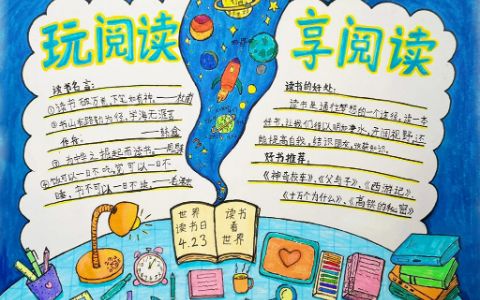 玩阅读
享阅读
读书名言:
①读书破万卷,下笔如有神。——杜甫
②书山有路勤为径,学海无涯苦
作舟。——韩愈
③为中华之崛起而读书——周恩来
④饭可以一日不吃,觉可以一日不
睡,书不可以一日不读。——毛泽东
读书的好处:
读书是通往梦想的一个途径,读一本
好书,让我们得以明净如水,开阔视野,还
能提高自我,结识朋友,收获知识。
好书推荐。
《神奇校车》、《父与子》、《西游记》
《十万个为什么》、《高铁的秘密》
世界
读书日
4.23
读书
看
世界